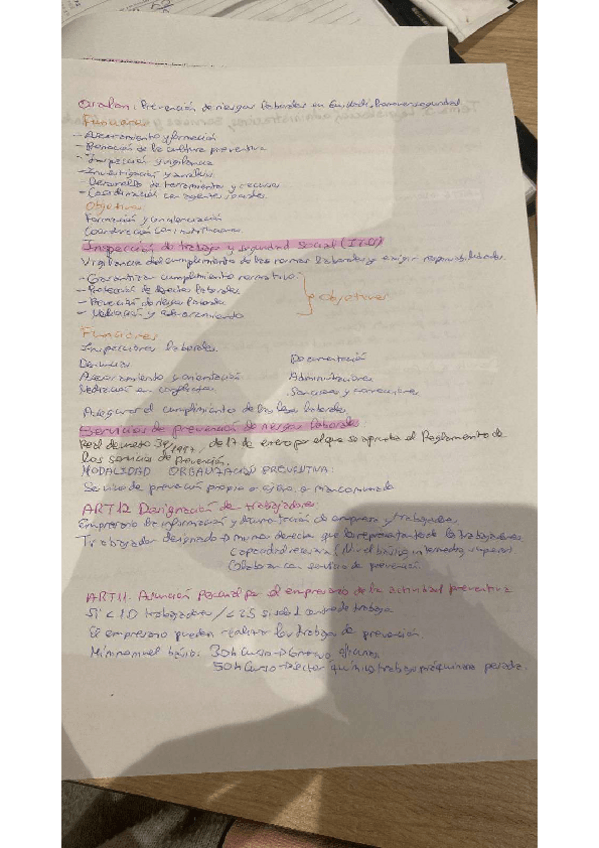 Osalan: Prevención de riesgos laborales en Euskadi,
Funciones
- Asesoramiento y formación
- Promoción de la cultura preventiva
- Inspección y vigilancia
- Investigación y análisis
- Desarrollo de herramientas y recursos
- Coordinación con agentes sociales
Objetivos
Formación y concienciación
Coordinación con instituciones
Inspección de trabajo y seguridad social
Vigilancia del cumplimiento de las normas laborales y exigir responsabilidades.
- Garantizar cumplimiento normativo
- Protección de derechos laborales
- Prevención de riesgos laborales
- Mediación y asesoramiento
Objetivos
Funciones
Inspecciones laborales
Denuncias Documentación
Asesoramiento y orientación
Mediación en conflictos Sanciones y correcciones
Asegurar el cumplimiento de las leyes laborales
Servicios de prevención de riesgos laborales
Real decreto 39/1997, de 17 de enero por el que se aprueba el Reglamento de
los servicios de prevención.
MODALIDAD ORGANIZACIÓN PREVENTIVA:
Servicio de prevención propio o ajeno, o mancomunado
ART 12 Designación de trabajadores:
Empresario da información y documentación de empresa y trabajadores
Trabajador designado mismos derechos que los representantes de los trabajadores
capacidad necesaria (Nivel básico, intermedio, superior)
Colaborar con servicio de prevención
ART 11. Asunción personal por el empresario de la actividad preventiva
Si < 10 trabajadores / < 25 si solo 1 centro de trabajo
El empresario puede realizar los trabajos de prevención.
Mínimo nivel básico: 30h curso oficinas
50h curso químico, trabajo maquinaria pesada.